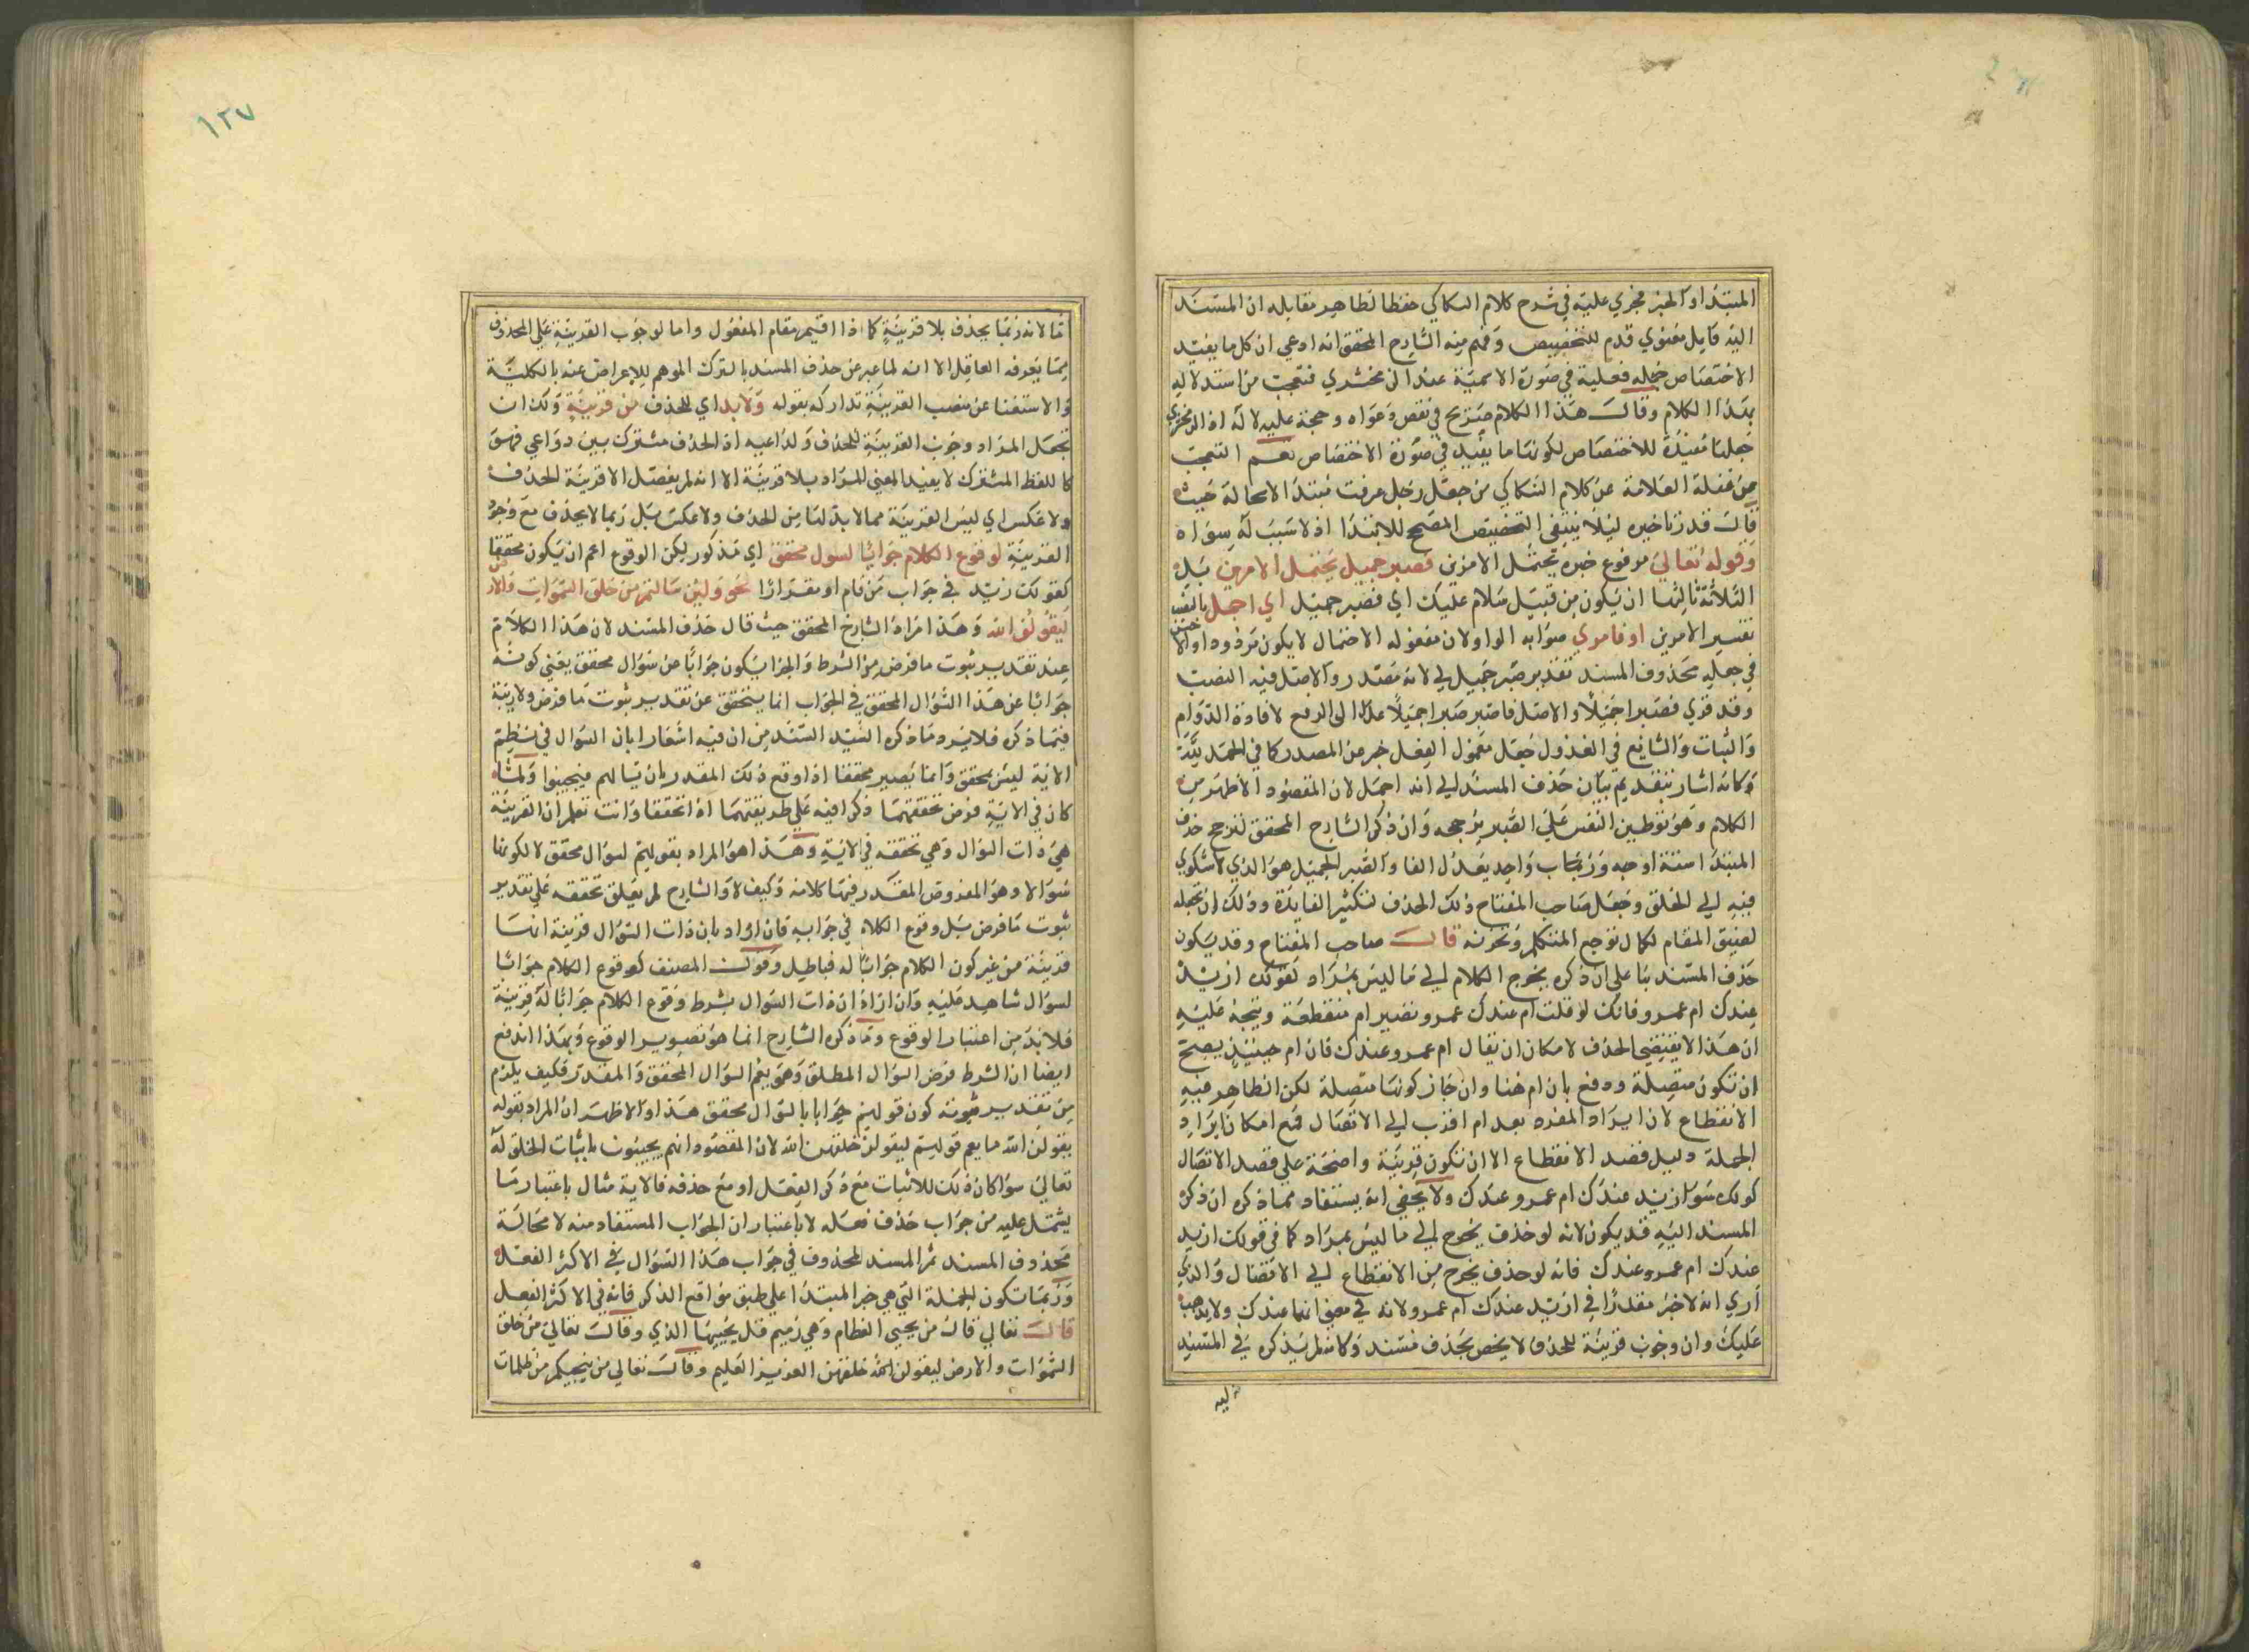 المبتدأ والخبر مجري عليه في شرح كلام السكاكي حفظا لظاهر مقابله ان المسند
اليه فاعل معنوي قدم للتخصيص وفهم منه الشارح المحقق انه ادعي ان كل ما يفيد
الاختصاص جملة فعلية في صورة الاسمية عند الزمخشري فتعجب من استدلاله
بهذا الكلام وقال هذا الكلام صريح في نقص دعواه وحجة عليه لا له اذ الزمخشري
جعلها مفيدة للاختصاص لكونها ما يفيد في صورة الاختصاص نعم التعجب
من غفلة العلامة عن كلام السكاكي من جعل رجل عرفت مبتدأ لا محالة حيث
قال قدرنا خيره ليلا ينتفي التخصيص المصحح للابتدا اذ لا سبب له سواه
وقوله تعالي مرفوع خبره يحتمل الامرين فصبر جميل يحتمل الامرين بل
الثلاثة ثالثها ان يكون من قبيل سلام عليك اي فصبر جميل اي اجمل
تفسير الامرين او فامري صوابه الواو لان مفعوله الاحتمال لا يكون مردودا والا
في جعله محذوف المسند تقدير صبر جميل لي لانه مصدر والاصل فيه النصب
وقد قري فصبرا جميلا والاصل فاصبر صبرا جميلا عدل الي الرفع لافادة الدوام
والثبات والشايع في العدول جعل معمول الفعل خبر عن المصدر كما في الحمد لله
وكانه اشار بتقديم بيان حذف المسند الي انه اجمل لان المقصود الاظهر من
الكلام وهو توطين النفس علي الصبر يرجحه وان ذكر الشارح المحقق لترجح حذف
المبتدا ستة اوجه ورب باب واحد يعدل الفا والصبر الجميل هو الذي لا شكوي
فيه الي الخلق وجعل صاحب المفتاح ذلك الحذف لتكثير الفايدة وذلك ان تجعله
لضيق المقام لكمال توجع المتكلم وتحزنه قال صاحب المفتاح وقد يكون
حذف المسند بنا علي ان ذكره يخرج الكلام الي ما ليس بمراد كقولك ازيد
عندك ام عمرو فانك لو قلت ام عندك عمرو تصير ام منقطعة ويتجه عليه
ان هذا لا يقتضي الحذف لامكان ان تقال ام عمرو عندك فان ام حينيذ يصح
ان تكون متصلة ودفع بان ام هنا وان جاز كونها متصلة لكن الظاهر فيه
الانقطاع لان ايراد المفرد بعد ام اقرب الي الاتصال فمع امكان ايراد
الجملة دليل قصد الانقطاع الا ان تكون قرينة واضحة علي قصد الاتصال
كولك سوا ازيد عندك ام عمرو عندك ولا يخفي انه يستفاد مما ذكره ان ذكر
المسند اليه قد يكون لانه لو حذف يخرج الي ما ليس بمراد كما في قولك ازيد
عندك ام عمرو عندك فانه لو حذف يخرج من الانقطاع الي الاتصال والذي
اري انه لا خبر مقدرا في ازيد عندك ام عمرو لانه في معني انهما عندك ولا يذهب
عليك وان وجوب قرينة للحذف لا يخص بحذف مسند وكانه لم يذكره في المسند
ليه
١٢٧
اما لانه ربما يحذف بلا قرينة كما اذا اقيم مقام المفعول واما لوجوب القرينة علي المحذوف
مما يعرفه العاقل الا انه لما عبر عن حذف المسند بالترك الموهم للاعراض عنه بالكلية
والاستغنا عن نصب القرينة تداركه بقوله ولابد اي للحذف من قرينة ولك ان
تجعل المراد وجوب القرينة للحذف ولداعيه اذ الحذف مشترك بين دواعي فهو
كاللفظ المشترك لا يفيد المعني المراد بلا قرينة الا انه لم يفصل الا قرينة الحذف
ولا عكس اي ليس القرينة مما لا بد لها من الحذف ولا عكس بل ربما لا يحذف مع وجود
القرينة لوقوع الكلام جوابا لسول محقق اي مذكور لكن الوقوع اعم ان يكون محققا
كقولك زيد في جواب من قام او مقدرا نحو ولين سالتهم من خلق السموات والارض
ليقولن الله وهذا مراد الشارح المحقق حيث قال حذف المسند لان هذا الكلام
عند تقدير ثبوت ما فرض من الشرط والجزا يكون جوابا عن سوال محقق يعني كونه
جوابا عن هذا السوال المحقق في الجواب انما يتحقق عن تقدير ثبوت ما فرض ولا ريبة
فيما ذكره فلا يرد ما ذكره السيد السند من ان فيه اشعارا بان السوال في نظم
الاية ليس بمحقق وانما يصير محققا اذا وقع ذلك المقدر بان يسالهم فيجيبوا ولما
كان في الاية فرض تحققهما ذكرا فيه علي طريقتهما اذا تحققا وانت تعلم ان القرينة
هي ذات السوال وهي تحققه في الاية وهذا هو المراد بقولهم لسوال محقق لا لكونها
سوالا وهو المفروض المقدر فيما كلامه وكيف لا والشارح لم يعلق تحققه علي تقدير
ثبوت ما فرض بل وقوع الكلام في جوابه فان اراد بان ذات السوال قرينة انها
قرينة من غير كون الكلام جوابا له فباطل وقول المصنف كوقوع الكلام جوابا
لسوال شاهد عليه وان اراد ان ذات السوال بشرط وقوع الكلام جوابا له قرينة
فلا بد من اعتبار الوقوع وما ذكره الشارح انما هو تصوير الوقوع وبهذا اندفع
ايضا ان الشرط فرض السوال المطلق وهو يعم السوال المحقق والمقدر فكيف يلزم
من تقدير ثبوته كون قولهم جوابا بالسوال محقق هذا والاظهر ان المراد بقوله
يقولن الله ما يعم قولهم ليقولن خلقهن الله لان المقصود انهم يجيبون باثبات الخلق له
تعالي سوا كان ذلك للاثبات مع ذكر الفعل او مع حذفه فالاية مثال باعتبار ما
يشتمل عليه من جواب حذف فعله لا باعتبار ان الجواب المستفاد منه لا محالة
محذوف المسند ثم المسند المحذوف في جواب هذا السوال في الاكثر الفعل
وربما تكون الجملة التي هي خبر المبتدا علي طبق مواقع الذكر فانه في الاكثر الفعل
قال تعالي قال من يحيي العظام وهي رميم قل يحييها الذي وقال تعالي من خلق
السموات والارض ليقولن الله خلقهن العزيز العليم وقال تعالي من ينجيكم من ظلمات